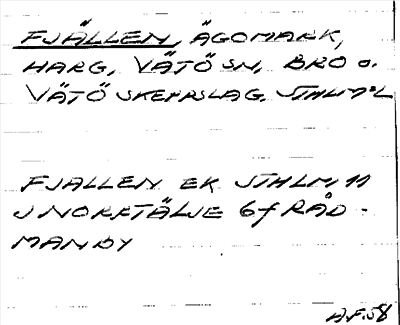 FJÄLLEN, ÄGOMARK,
HARG, VÄTÖ SN, BRO o.
VÄTÖ SKEPPSLAG. STHLMS L
FJALLEN EK STHLM 11
J NORRTÄLJE 6f RÅD-
MANBY
A.F. 58